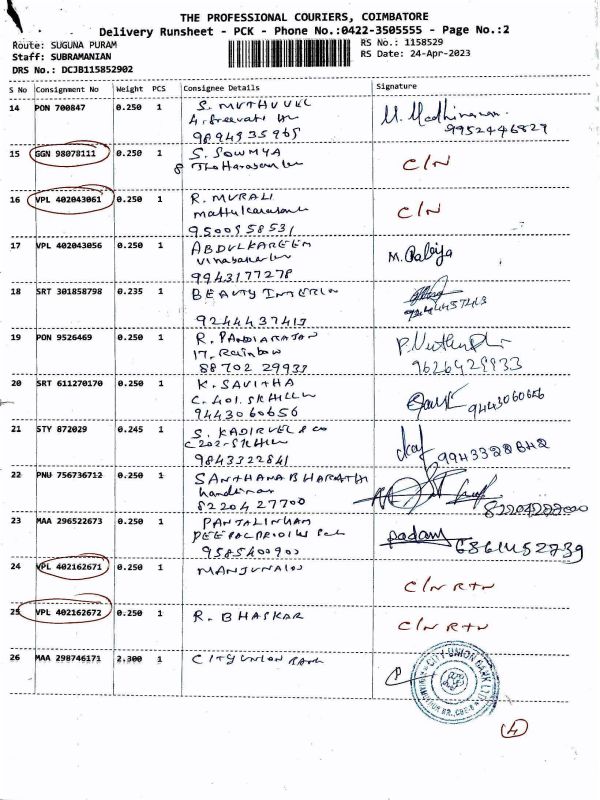 THE PROFESSIONAL COURIERS, COIMBATORE
Delivery Runsheet - PCK - Phone No.:0422-3505555 - Page No.:2
Route: SUGUNA PURAM
RS No.: 1158529
Staff: SUBRAMANIAN
RS Date: 24-Apr-2023
DRS No.: DCJB115852902
S No Consignment No Weight PCS Consignee Details Signature
14 PON 700847 0.250 1 S. MUTHUVEL
9894935965
9952446829
15 GGN 98078111 0.250 1 S. SOWMYA C/N
16 VPL 402043061 0.250 1 R. MURALI C/N
9500958531
17 VPL 402043056 0.250 1 ABDULKAREEM M. Rabiya
9943177278
18 SRT 301858798 0.235 1 BEAUTY INTERIO
9244437413
9244457413
19 PON 9526469 0.250 1 R. PANDIARAJAN
17, Rainbow
88702 29933 9626429933
20 SRT 611270170 0.250 1 K. SAVITHA
C. 401. SK HILLS 9443060656
9443060656
21 STY 872029 0.245 1 S. KADIRVEL & co
C 202-SK HILL
9843322841
22 PNU 756736712 0.250 1 SANTHANABHARATHI
8220427700
23 MAA 296522673 0.250 1 PANJALINGAM padam
9585400900
24 VPL 402162671 0.250 1 MANJUNATH C/N RTN
25 VPL 402162672 0.250 1 R. BHASKAR C/N RTN
26 MAA 298746171 2.300 1 CITY UNION BANK
CITY UNION BANK LTD.
4